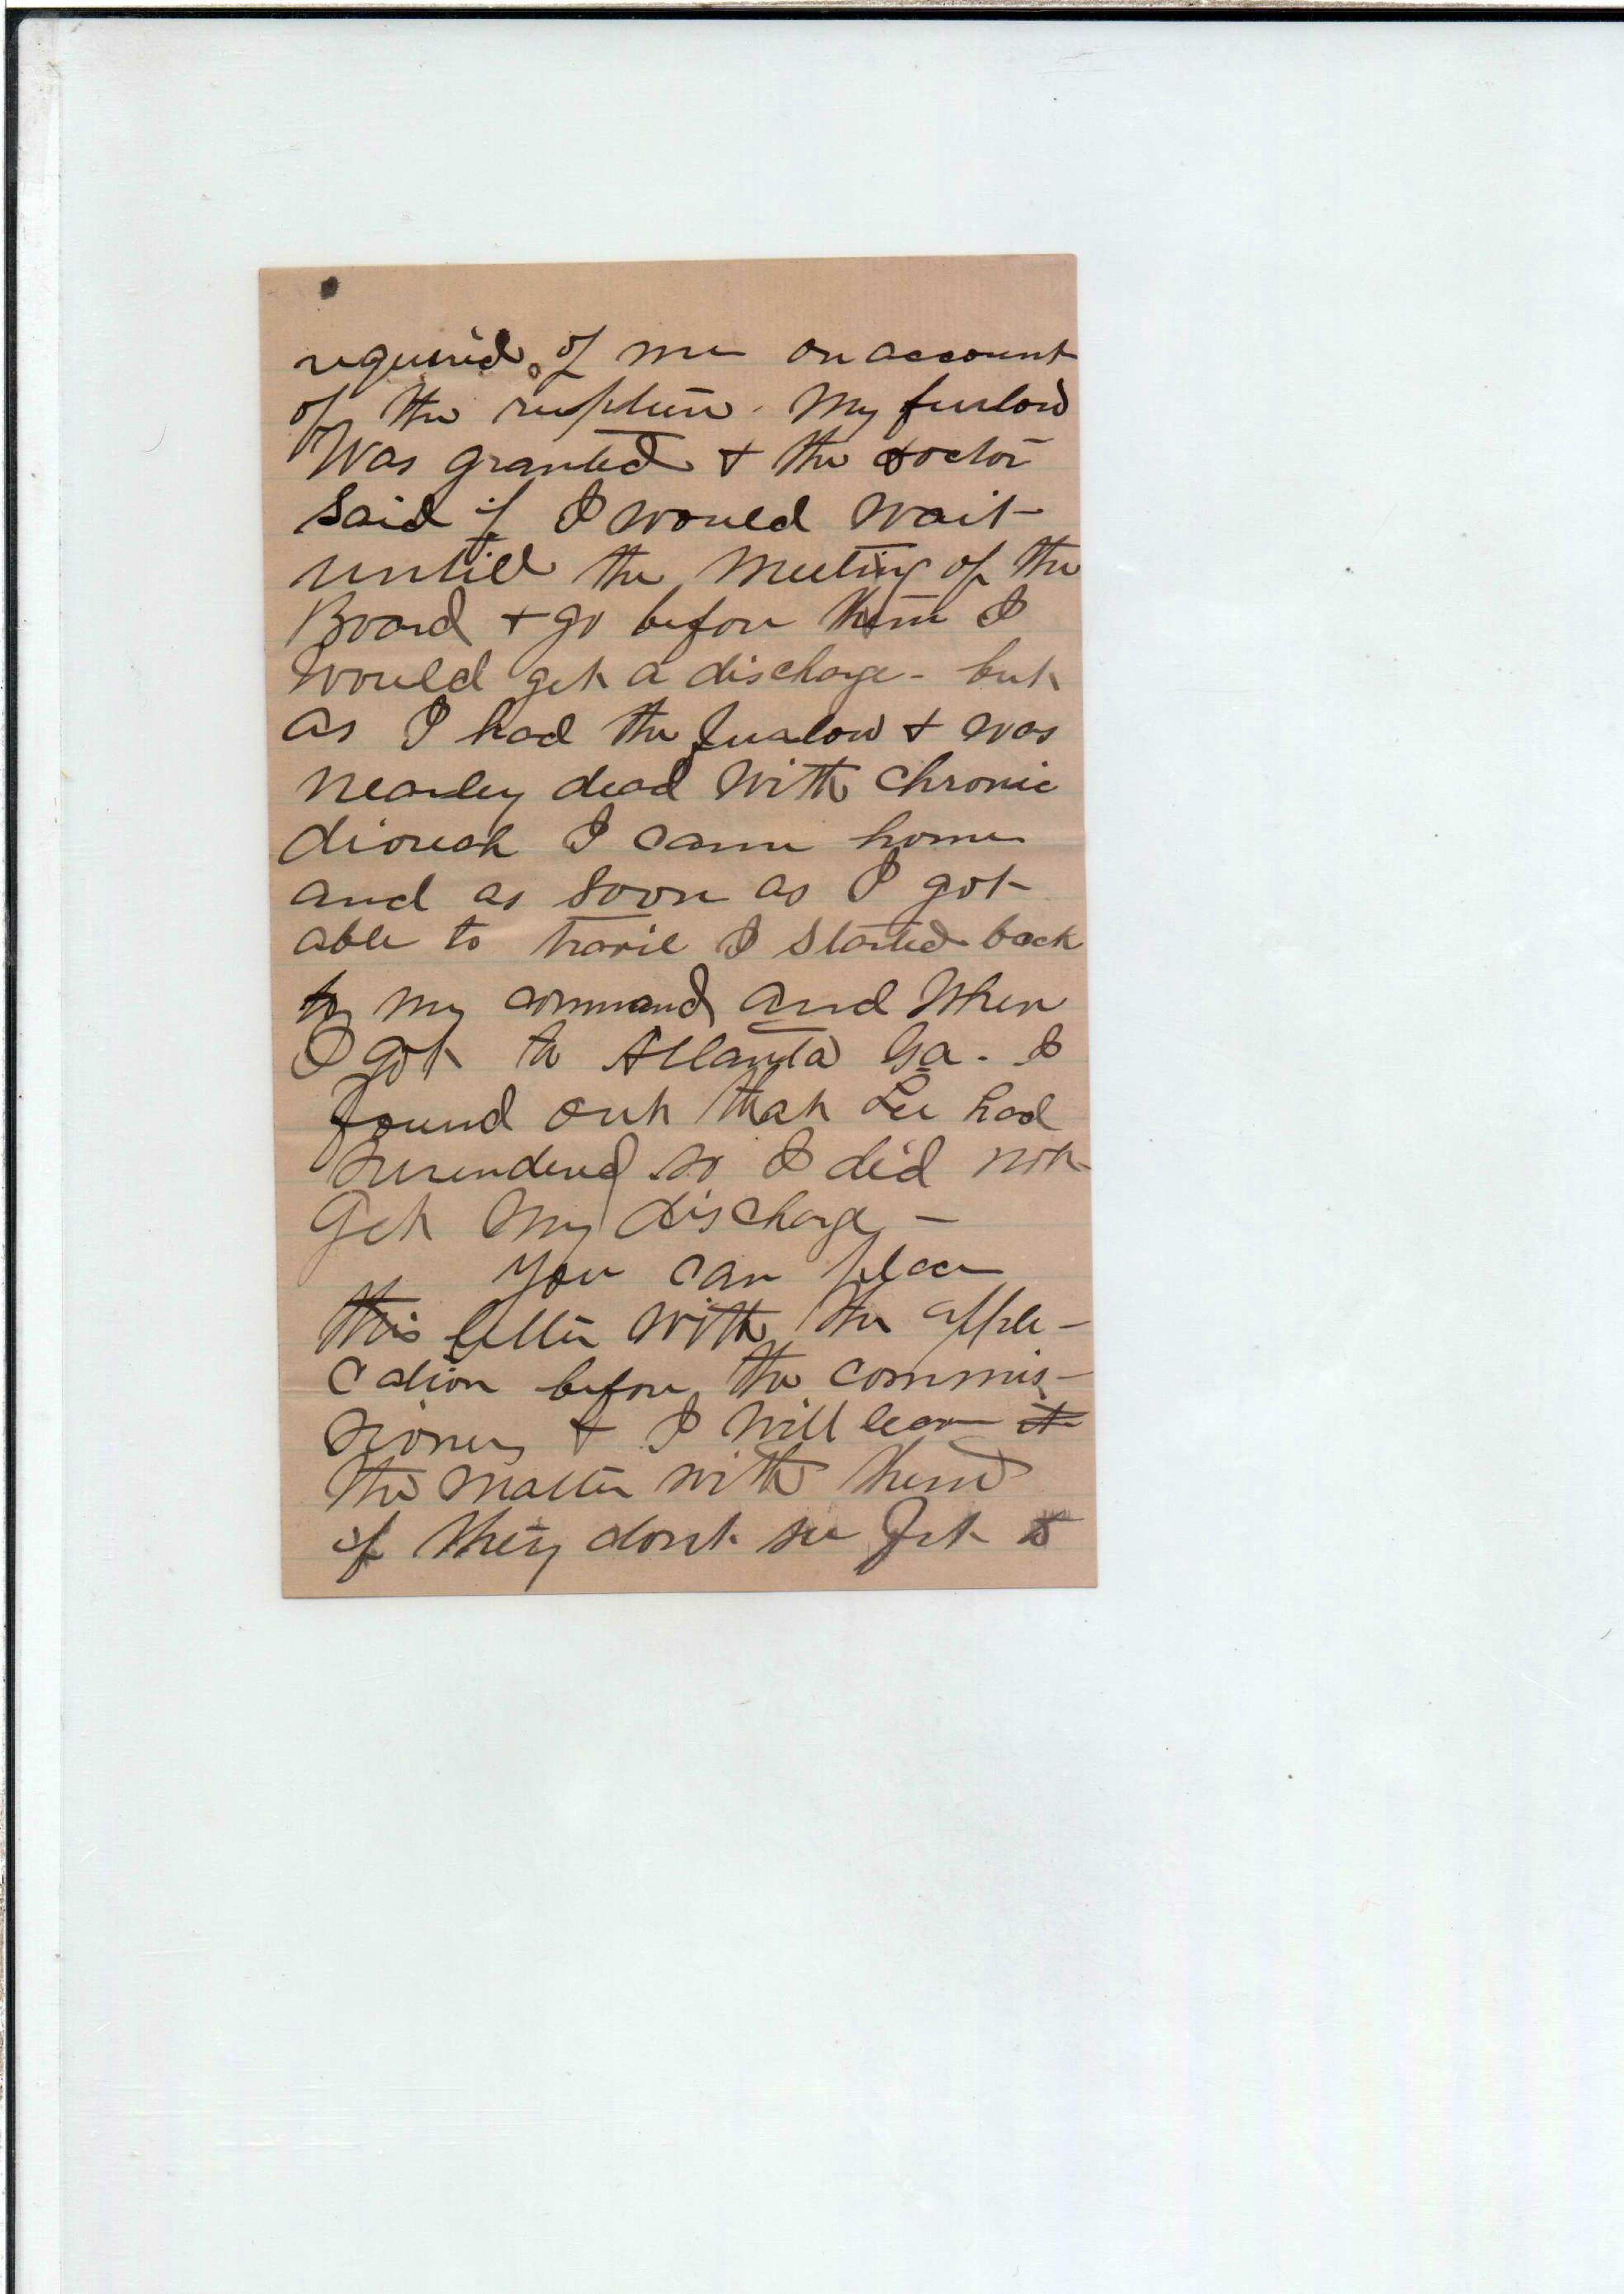 required of me on account
of the rupture. My furlow
Was granted + the doctor
said if I would wait
untill the meeting of the
Board + go before them I
would get a discharge - but
as I had the furlow + was
nearley dead with chronic
I came home
and as soon as I got
able to travil I started back
to my command and when
I got to Atlanta Ga. I
found out that Lee had
surendered so I did not
Get my discharge -
You can place
this letter with the appli-
cation before the commis-
sioners + I will leave it
the matter with them
if they dont see fit to